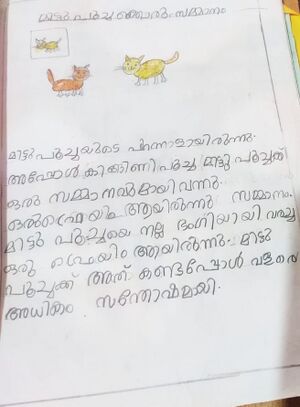 മിട്ടു പൂച്ചയ്ക്കൊരു സമ്മാനം
മിട്ടു പൂച്ചയുടെ പിറന്നാളായിരുന്നു.
അപ്പോൾ കിങ്ങിണിപൂച്ച മിട്ടു പൂച്ചക്ക്
ഒരു സമ്മാനവുമായി വന്നു.
ഒരു ഫ്രെയിം ആയിരുന്നു സമ്മാനം.
മിട്ടു പൂച്ചയെ നല്ല ഭംഗിയായി വരച്ച
ഒരു ഫ്രെയിം ആയിരുന്നു. മിട്ടു
പൂച്ചക്ക് അത് കണ്ടപ്പോൾ വളരെ
അധികം സന്തോഷമായി.